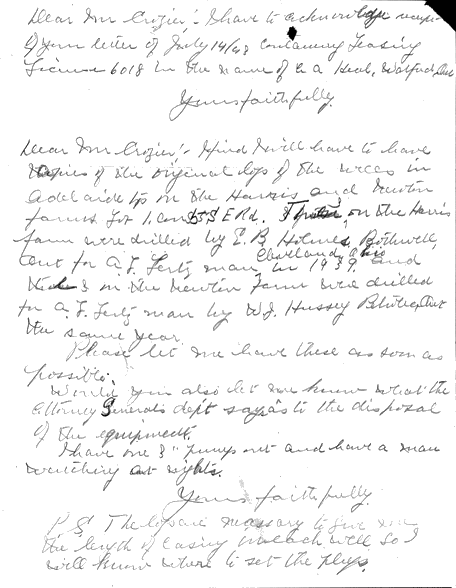 Dear Mr Crozier: I have to acknowledge
of your letter of July 14/48 containing Leasing
License 6018 in the name of
Yours faithfully.
Dear Mr Crozier, I find I will have to have
copies of the original logs of the wells in
Adelaide tp on the Harris and Newton
farms Lot 1. con S E Rd. on the Harris
farm were drilled by E. B. Holmes, Bothwell,
Ont for A. J. man, Cleveland, Ohio in 1939 and
the 3 on the Newton farm were drilled
for A. J. man by W. J. Hussey Ont
the same year.
Please let me have these as soon as
possible.
Would you also let me know what the
attorney Generals dept says as to the disposal
of the equipment.
I have one 3" pump out and have a man
watching at nights.
Yours faithfully
P. S. The logs are necessary to give me
the length of casing in each well so I
will know where to set the plugs.